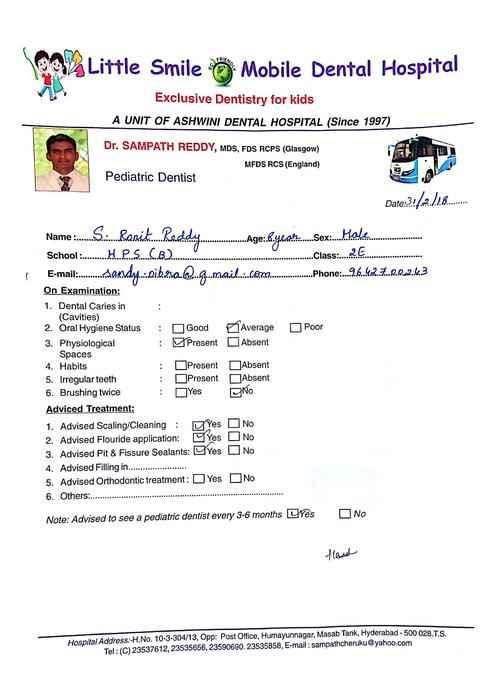 Little Smile Mobile Dental Hospital
Exclusive Dentistry for kids
A UNIT OF ASHWINI DENTAL HOSPITAL (Since 1997)
Dr. SAMPATH REDDY, MDS, FDS RCPS (Glasgow)
MFDS RCS (England)
Pediatric Dentist
Date: 31/2/18
Name: S. Ronit Reddy Age: 8 year Sex: Male
School: HPS (B) Class: 2E
E-mail: @gmail.com Phone: 9642700243
On Examination:
1. Dental Caries in :
(Cavities)
2. Oral Hygiene Status : Good Average Poor
3. Physiological : Present Absent
Spaces
4. Habits : Present Absent
5. Irregular teeth : Present Absent
6. Brushing twice : Yes No
Adviced Treatment:
1. Advised Scaling/Cleaning : Yes No
2. Advised Flouride application: Yes No
3. Advised Pit & Fissure Sealants: Yes No
4. Advised Filling in.....................
5. Advised Orthodontic treatment : Yes No
6. Others:......................................................
Note: Advised to see a pediatric dentist every 3-6 months Yes No
Hospital Address:-H.No. 10-3-304/13, Opp: Post Office, Humayunnagar, Masab Tank, Hyderabad - 500 028.T.S.
Tel : (C) 23537612, 23535656, 23590690. 23535858, E-mail : sampathcheruku@yahoo.com